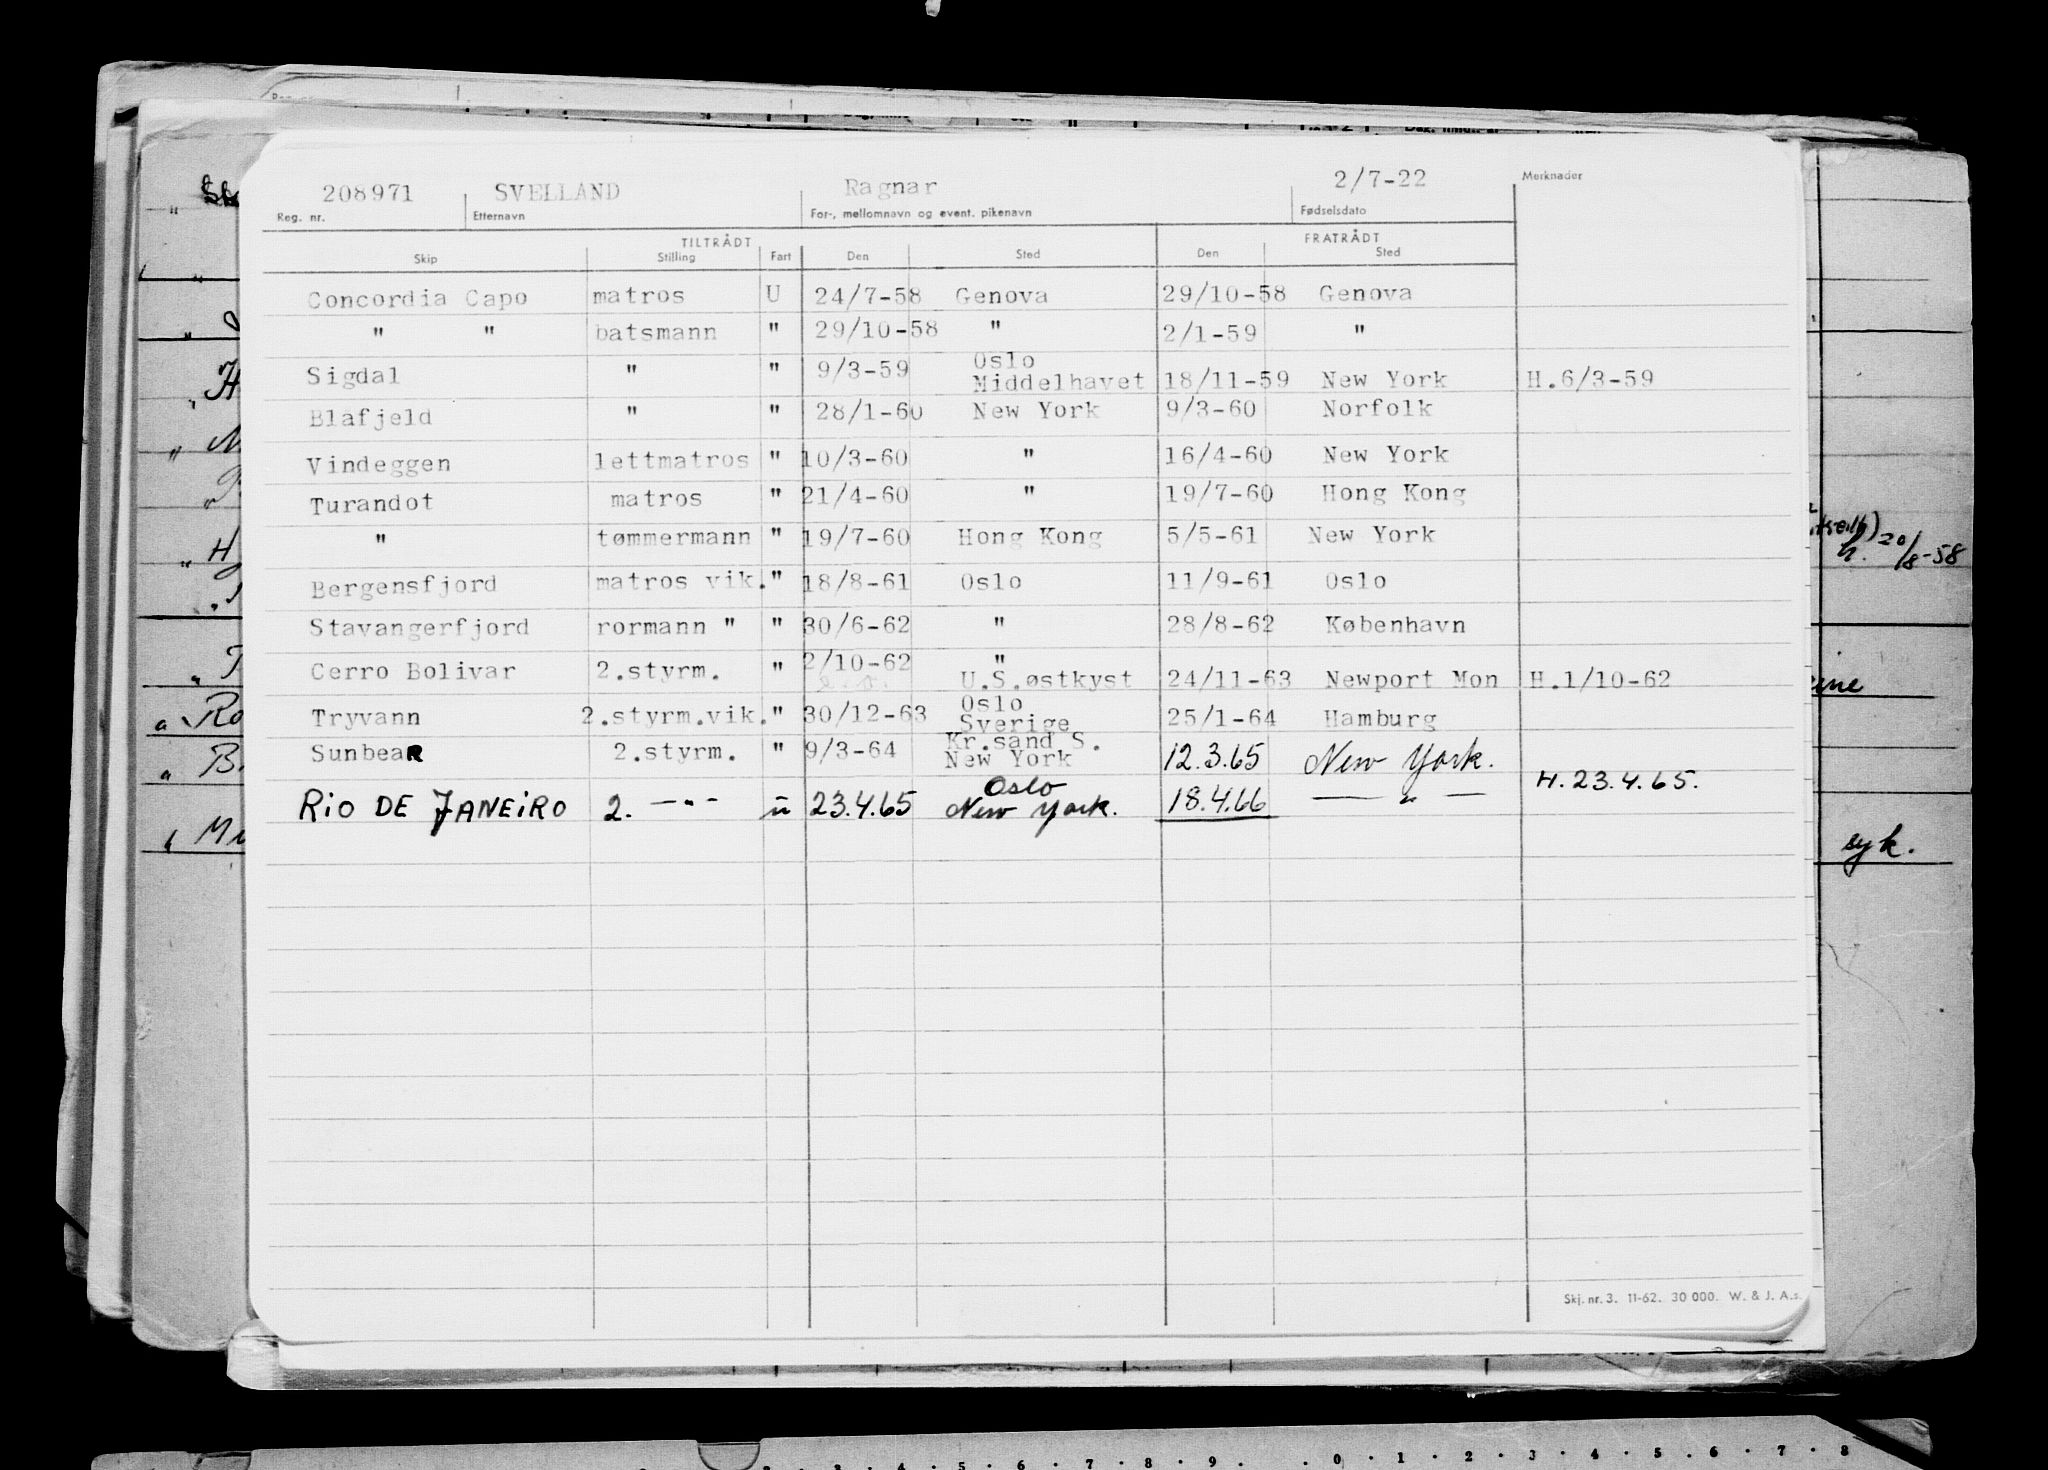 208971 SVELLAND Ragnar 2/7-22 Merknader
Reg. nr. Etternavn For-, mellomnavn og event. pikenavn Fødselsdato
TILTRÅDT FRATRÅDT
Skip Stilling Fart Den Sted Den Sted
Concordia Capo matros U 24/7-58 Genova 29/10-58 Genova
" " batsmann " 29/10-58 " 2/1-59 "
Oslo
Sigdal " " 9/3-59 Middelhavet 18/11-59 New York H.6/3-59
Blafjeld " " 28/1-60 New York 9/3-60 Norfolk
Vindeggen lettmatros " 10/3-60 " 16/4-60 New York
Turandot matros " 21/4-60 " 19/7-60 Hong Kong
" tømmermann " 19/7-60 Hong Kong 5/5-61 New York
Bergensfjord matros vik. " 18/8-61 Oslo 11/9-61 Oslo
Stavangerfjord rormann " " 30/6-62 " 28/8-62 København
"
Cerro Bolivar 2.styrm. " 2/10-62 U.S.østkyst 24/11-63 Newport Mon H.1/10-62
Oslo
Tryvann 2.styrm.vik. " 30/12-63 Sverige 25/1-64 Hamburg
Kr.sand S.
SunbeaR 2.styrm. " 9/3-64 New York 12.3.65 New York.
Oslo H. 23.4.65.
RiO DE JANEiRO 2. —"— ü 23.4.65 New York. 18.4.66 — " —
20/8-58
syk.
Skj. nr. 3. 11-62. 30 000. W. & J. A.s.
2 . 3 . 4 . 5 . 6 . 7 . 8 . 9 . . 0 . 1 . 2 . 3 . 4 . 5 . 6 . 7 . 8